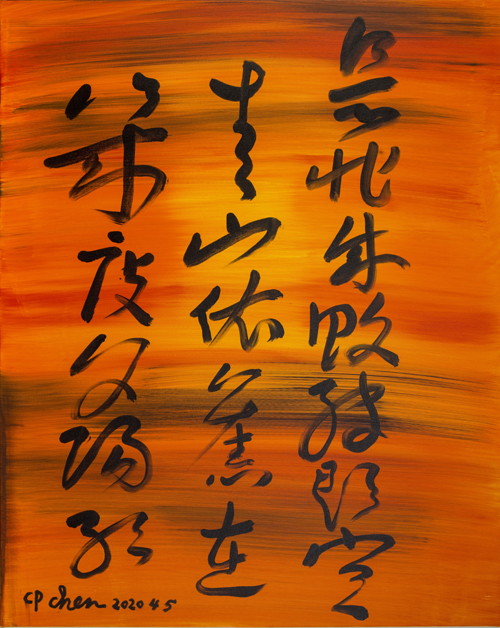 是非成敗轉頭空
青山依舊在
幾度夕陽紅
CP chen 2020 4 5